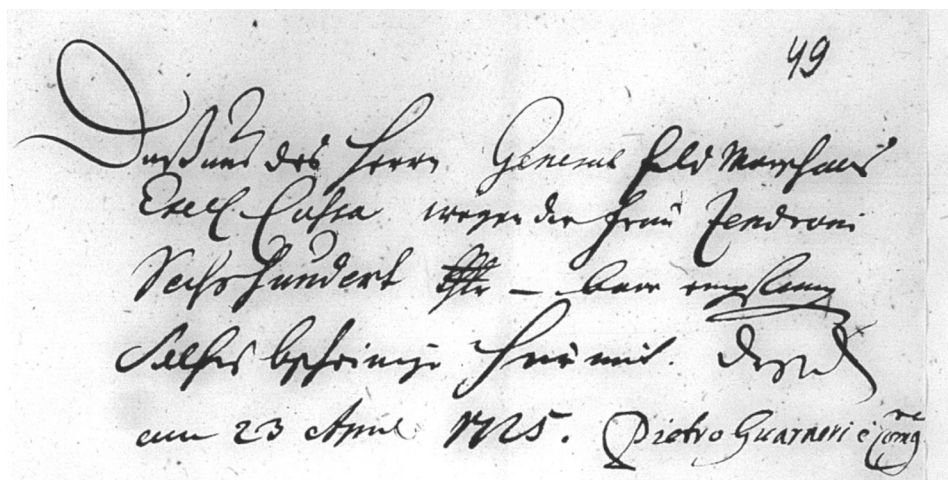 49
Daß aus des Herrn General Feld Marschals
Excell Cassa wegen der Frau Zendroni
Sechshundert — baar empfang
Solches bescheinige hiermit.
am 23 April 1725. Pietro Guarneri è